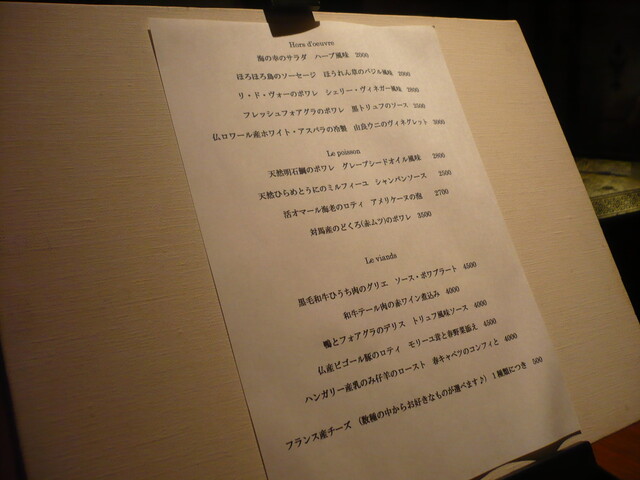 Hors d'oeuvre
海の幸のサラダ　ハーブ風味　2000
ほろほろ鳥のソーセージ　ほうれん草のバジル風味
リ・ド・ヴォーのポワレ　シェリー・ヴィネガー風味
フレッシュフォアグラのポワレ　黒トリュフのソース　3500
仏ロワール産ホワイト・アスパラの冷製　由良ウニのヴィネグレット　3000
Le poisson
天然明石鯛のポワレ　グレープシードオイル風味　2600
天然ひらめとうにのミルフィーユ　シャンパンソース　2500
活オマール海老のロティ　アメリケーヌの泡　2700
対馬産のどくろ(赤ムツ)のポワレ　3500
Le viands
黒毛和牛ひうち肉のグリエ　ソース・ポワブラート　4500
和牛テール肉の赤ワイン煮込み　4000
鴨とフォアグラのデリス　トリュフ風味ソース　4000
仏産ビゴール豚のロティ　モリーユ茸と春野菜添え　4500
ハンガリー産乳のみ仔羊のロースト　春キャベツのコンフィと　4000
フランス産チーズ　(数種の中からお好きなものが選べます♪)　1種類につき　500